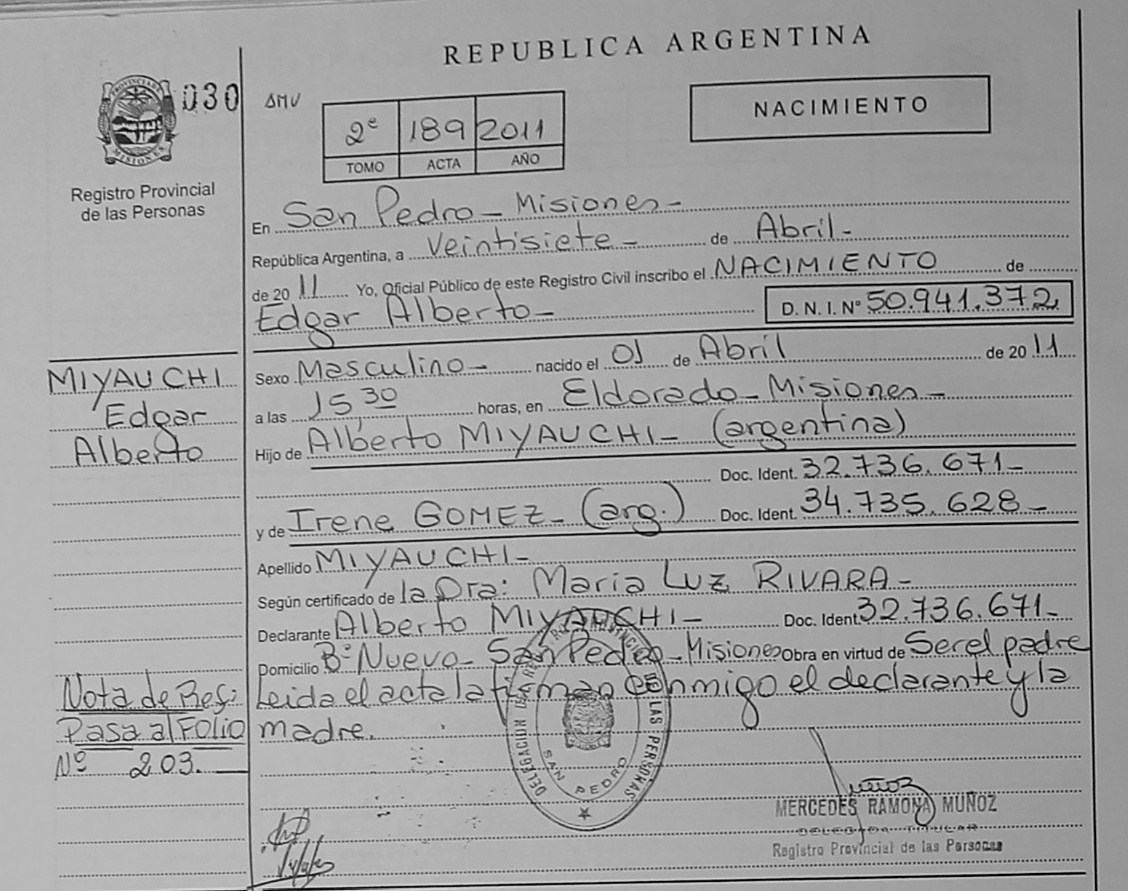 REPUBLICA ARGENTINA
030
PROVINCIA DE
MISIONES
Registro Provincial
de las Personas
AMV
2º 189 2011
TOMO ACTA AÑO
NACIMIENTO
En San Pedro - Misiones -
República Argentina, a Veintisiete - de Abril -
de 2011 Yo, Oficial Público de este Registro Civil inscribo el NACIMIENTO de
Edgar Alberto - D. N. I. Nº 50.941.372
MIYAUCHI
Edgar
Alberto
Sexo Masculino - nacido el 01 de Abril de 2011
a las 15,30 horas, en Eldorado - Misiones -
Hijo de Alberto MIYAUCHI - (argentina)
Doc. Ident. 32.736.671 -
y de Irene GOMEZ - (arg.) Doc. Ident. 34.735.628 -
Apellido MIYAUCHI -
Según certificado de la Dra: Maria Luz RIVARA -
Declarante Alberto MIYAUCHI - Doc. Ident. 32.736.671 -
Domicilio Bº Nuevo - San Pedro - Misiones Obra en virtud de Ser el padre
Leida el acta la firman conmigo el declarante y la
madre.
Nota de Ref:
Pasa al Folio
Nº 203.
DELEGACION LAS PERSONAS
SAN PEDRO
MERCEDES RAMONA MUÑOZ
DELEGADA TITULAR
Registro Provincial de las Personas